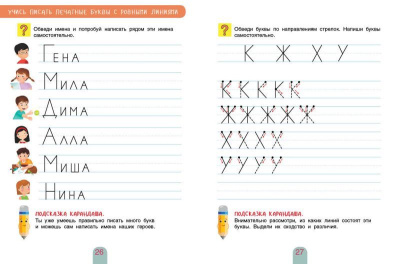 УЧИСЬ ПИСАТЬ ПЕЧАТНЫЕ БУКВЫ С РОВНЫМИ ЛИНИЯМИ
?
Обведи имена и попробуй написать рядом эти имена
самостоятельно.
Гена
Мила
Дима
Алла
Миша
Нина
ПОДСКАЗКА КАРАНДАША.
Ты уже умеешь правильно писать много букв
и можешь сам написать имена наших героев.
26
?
Обведи буквы по направлениям стрелок. Напиши буквы
самостоятельно.
К Ж Х У
К К К К К
Ж Ж Ж Ж Ж
Х Х Х Х
У У У У
ПОДСКАЗКА КАРАНДАША.
Внимательно рассмотри, из каких линий состоят эти
буквы. Выдели их сходство и различия.
27